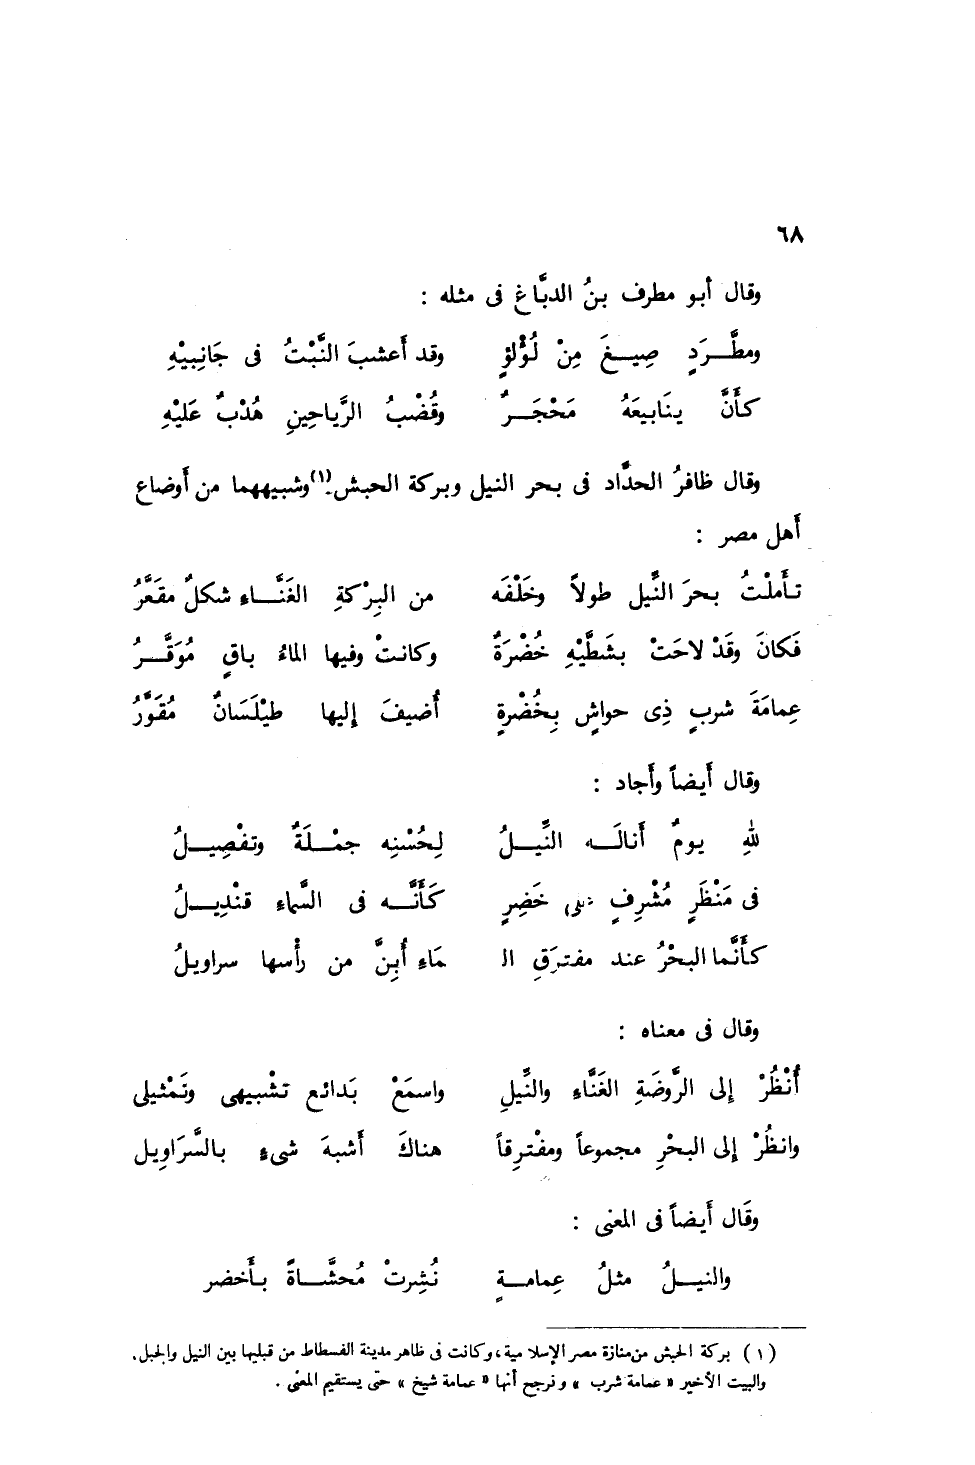 ٦٨
وقال أبو مطرف بنُ الدبَّاغِ فى مثله :
ومطَّرَدٍ صِيغَ مِنْ لُؤْلؤٍ وقد أعشبَ النَّبْتُ فى جَانِبيْهِ
كأَنَّ ينَابيعَهُ مَحْجَرٌ وقُضْبُ الرَّياحِينِ هُدْبٌ عَليْهِ
وقال ظافرُ الحدَّاد فى بحر النيل وبركة الحبش(١) وشبيههما من أوضاع
أهل مصر :
تأَملْتُ بحرَ النِّيل طولاً وخَلْفَه من البِرْكةِ الغَنَّاء شكلٌ مقعَّرُ
فَكانَ وقَدْ لاحَتْ بشَطَّيْهِ خُضْرَةٌ وكانتْ وفيها الماءُ باقٍ مُوَقَّرُ
عِمامَةَ شربٍ ذِى حواشٍ بِخُضْرةٍ أُضيفَ إليها طيْلَسَانٌ مُقَوَّرُ
وقال أيضاً وأجاد :
للهِ يومٌ أنالَه النِّيلُ لِحُسْنِه جمْلَةٌ وتفْصِيلُ
فى مَنْظَرٍ مُشْرِفٍ على خَضِرٍ كَأَنَّه فى السَّماءِ قنْدِيلُ
كأَنَّما البحْرُ عند مفترَقِ الـ ماءِ أُبِنَّ من رأْسها سراويلُ
وقال فى معناه :
أُنْظُرْ إلى الرَّوضَةِ الغَنَّاءِ والنِّيلِ واسمَعْ بَدائعَ تشْبيهى وتَمْثيلى
وانظُرْ إلى البحْرِ مجموعاً ومفْترِقاً هناكَ أشبهَ شىءٍ بالسَّرَاوِيل
وقَال أيضاً فى المعنى :
والنيلُ مثلُ عِمامةٍ نُشِرتْ مُحشَّاةً بأَخضر
(١) بركة الحبش من منازة مصر الإسلامية، وكانت فى ظاهر مدينة الفسطاط من قبليها بين النيل والجبل.
والبيت الأخير « عمامة شرب » ونرجح أنها « عمامة شيخ » حتى يستقيم المعنى .